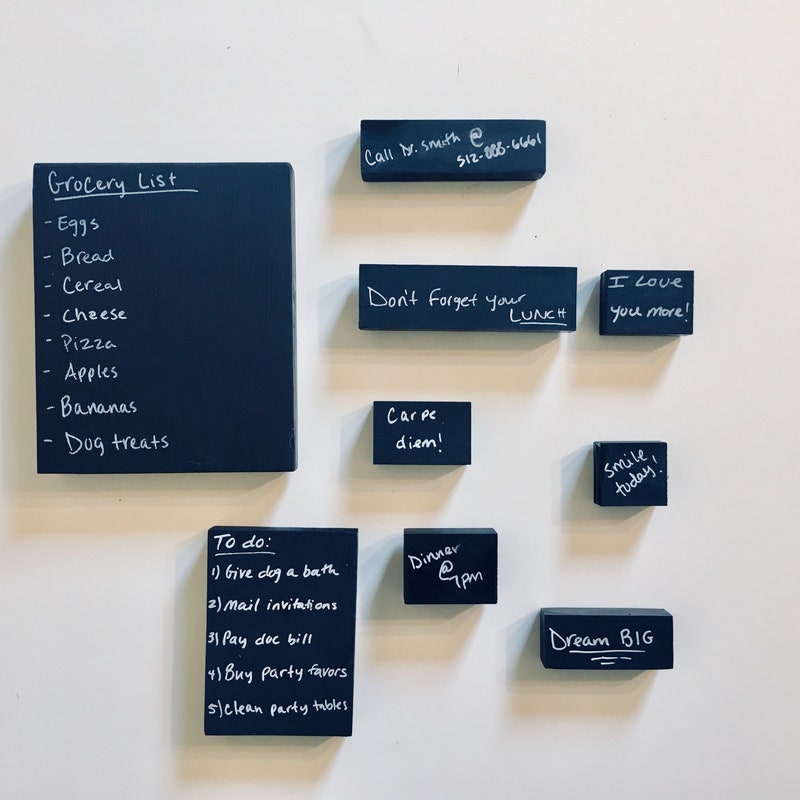 Grocery List
- Eggs
- Bread
- Cereal
- Cheese
- Pizza
- Apples
- Bananas
- Dog treats
Call Dr. Smith @
Don't Forget your
LUNCH
I Love
you more!
Carpe
diem!
Smile
today!
To do:
1) Give dog a bath
2) Mail invitations
3) Pay doc bill
4) Buy party favors
5) Clean party tables
Dinner
@
7pm
Dream BIG